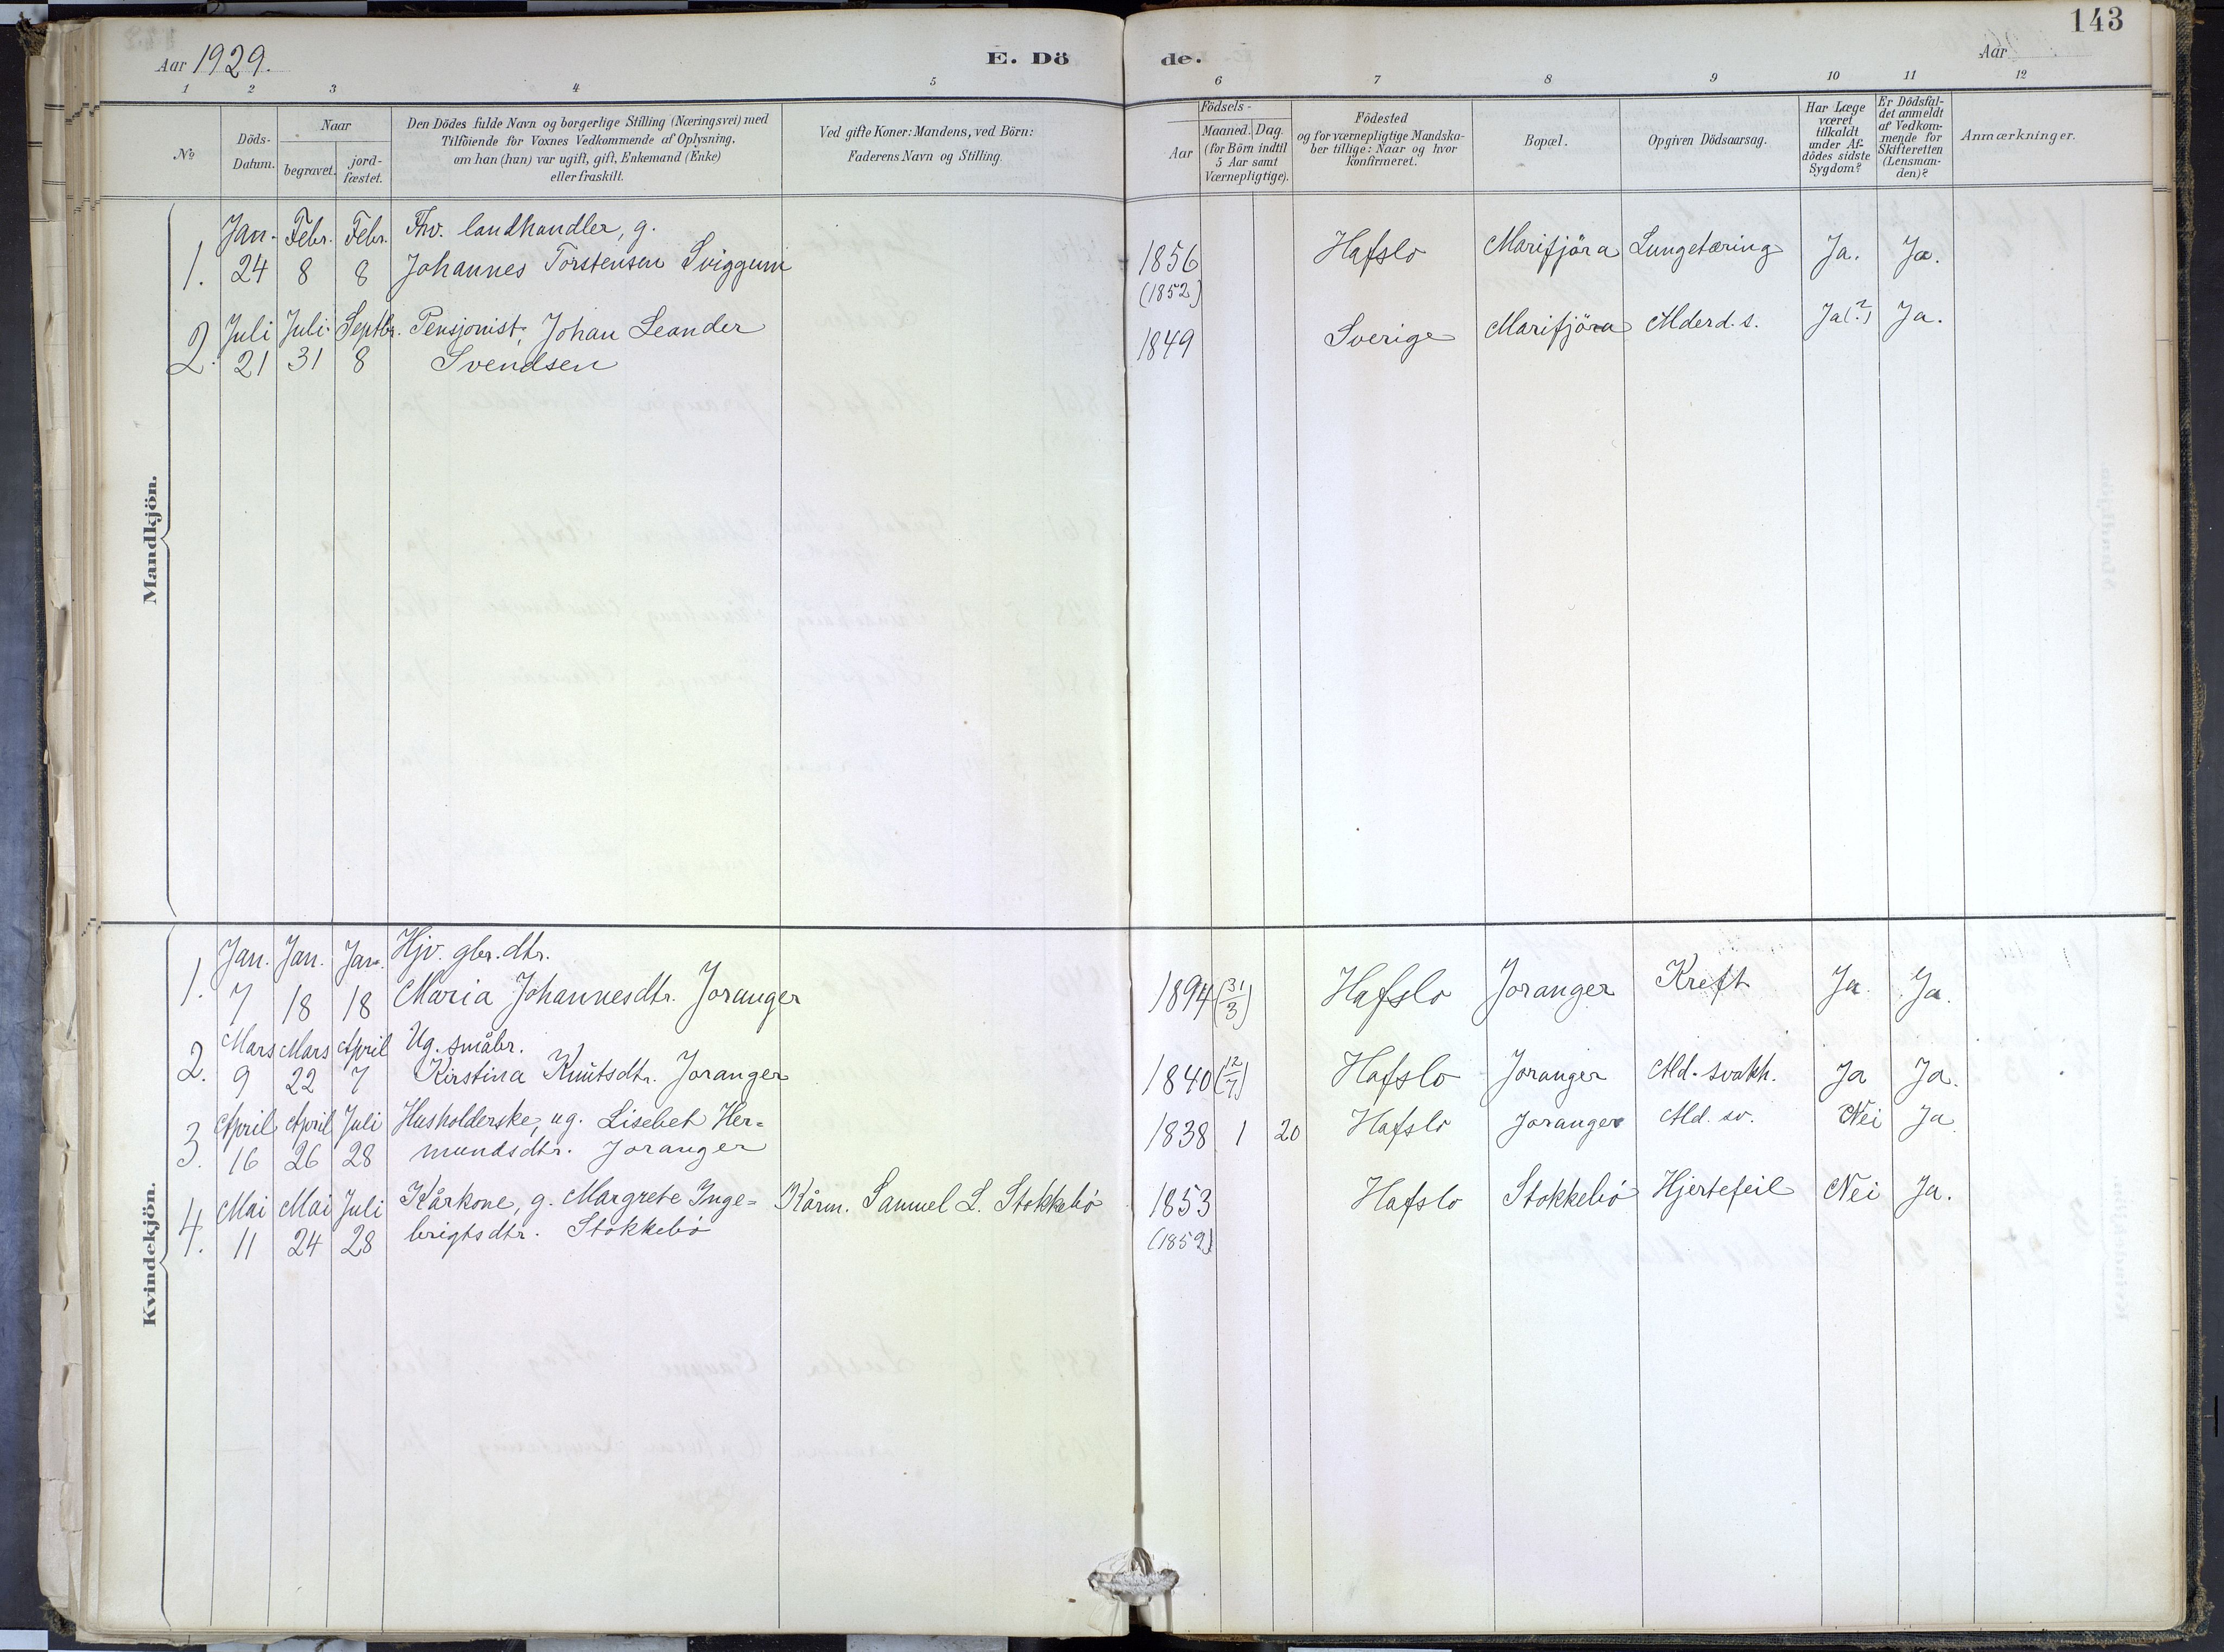 143
Aar 1929.
E. Dö
de.
Aar
1 2 3 4 5 6 7 8 9 10 11 12
No
Döds-
Datum.
Naar
begravet.
jord-
fæstet.
Den Dödes fulde Navn og borgerlige Stilling (Næringsvei) med
Tilföiende for Voxnes Vedkommende af Oplysning,
om han (hun) var ugift, gift, Enkemand (Enke)
eller fraskilt.
Ved gifte Koner: Mandens, ved Börn:
Faderens Navn og Stilling.
Födsels-
Aar
Maaned. Dag.
(for Börn indtil
5 Aar samt
Værnepligtige).
Födested
og for værnepligtige Mandska-
ber tillige: Naar og hvor
konfirmeret.
Bopæl.
Opgiven Dödsaarsag.
Har Læge
været
tilkaldt
under Af-
dödes sidste
Sygdom?
Er Dödsfal-
det anmeldt
af Vedkom-
mende for
Skifteretten
(Lensman-
den)?
Anmærkninger.
Mandkjön.
Jan. Febr. Febr. Fhv. landhandler, g.
1. 24 8 8 Johannes Torstensen Sviggum 1856 Hafslo Marifjöra Lungetæring Ja. Ja.
(1852)
Juli Juli Septbr. Pensjonist, Johan Leander
2. 21 31 8 Svendsen 1849 Sverige Marifjöra Alderd. s. Ja(?) Ja.
Kvindekjön.
Jan. Jan. Jan. Hjv. gbr. dtr.
1. 7 18 18 Maria Johannesdtr. Joranger 1894 (31/3) Hafslo Joranger Kreft Ja. Ja.
Mars Mars April Ug. småbr.
2. 9 22 7 Kirstina Knutsdtr. Joranger 1840 (12/7) Hafslo Joranger Ald. svakh. Ja Ja.
April April Juli Husholderske, ug. Lisebet Her=
3. 16 26 28 mundsdtr. Joranger 1838 1 20 Hafslo Joranger Ald. sv. Nei Ja
Mai Mai Juli Kårkone, g. Margrete Inge= Kårm. Samuel L. Stokkebö 1853 Hafslo Stokkebö Hjertefeil Nei Ja.
4. 11 24 28 brigtsdtr. Stokkebö (1852)